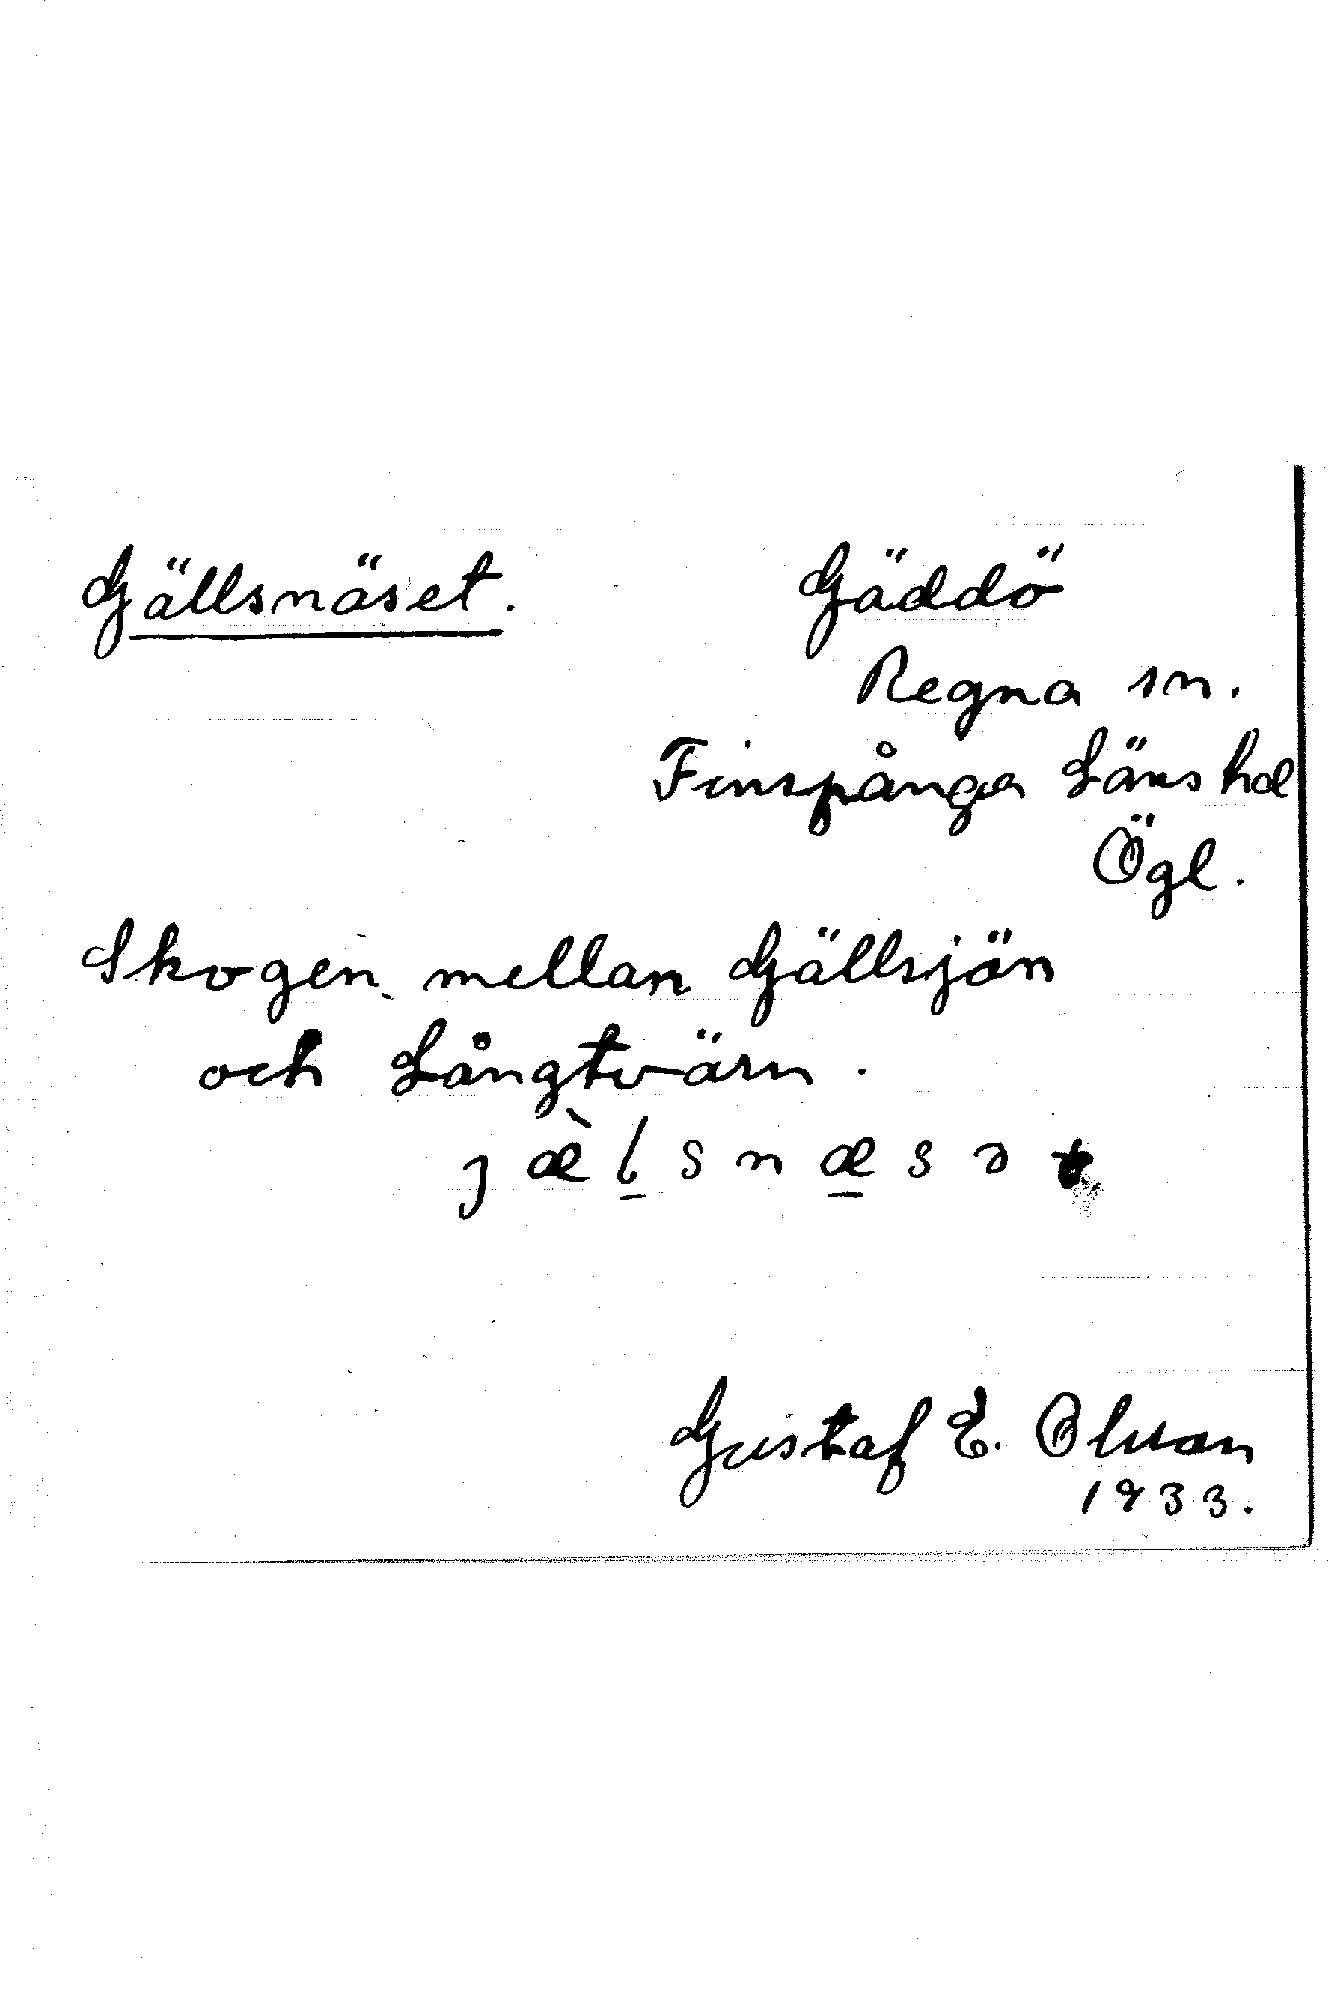 Gällsnäset. Gäddö
Regna sn.
Finspånga Läns hd
Ögl.
Skogen mellan Gällsjön
och Långtvärn.
jæ̀l̲snæ̲sət
Gustaf E. Olsson
1933.